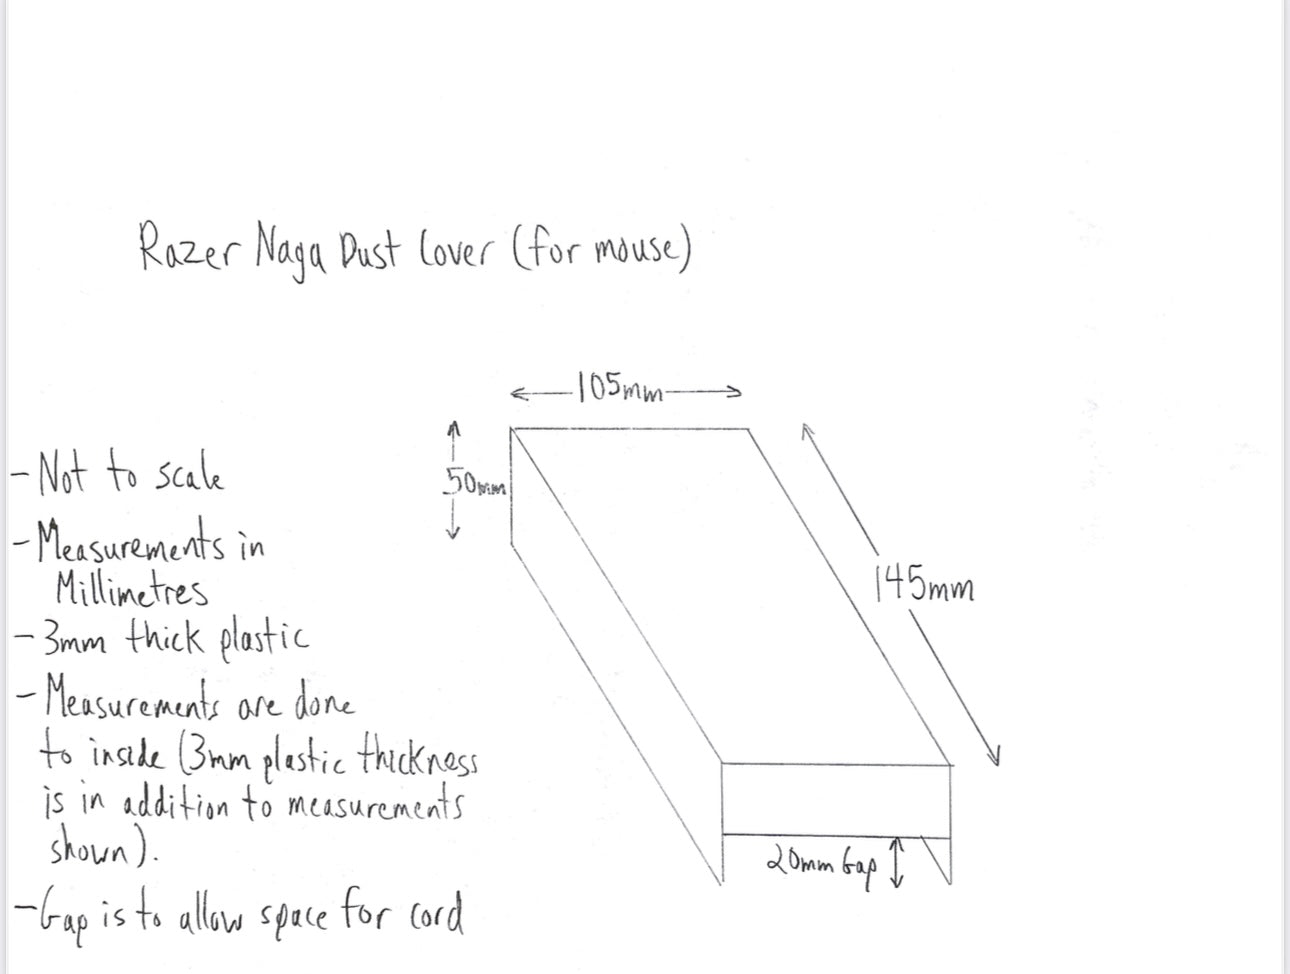 Razer Naga Dust Cover (for mouse)
105mm
50mm
145mm
20mm Gap
- Not to scale
- Measurements in
Millimetres
- 3mm thick plastic
- Measurements are done
to inside (3mm plastic thickness
is in addition to measurements
shown).
- Gap is to allow space for cord